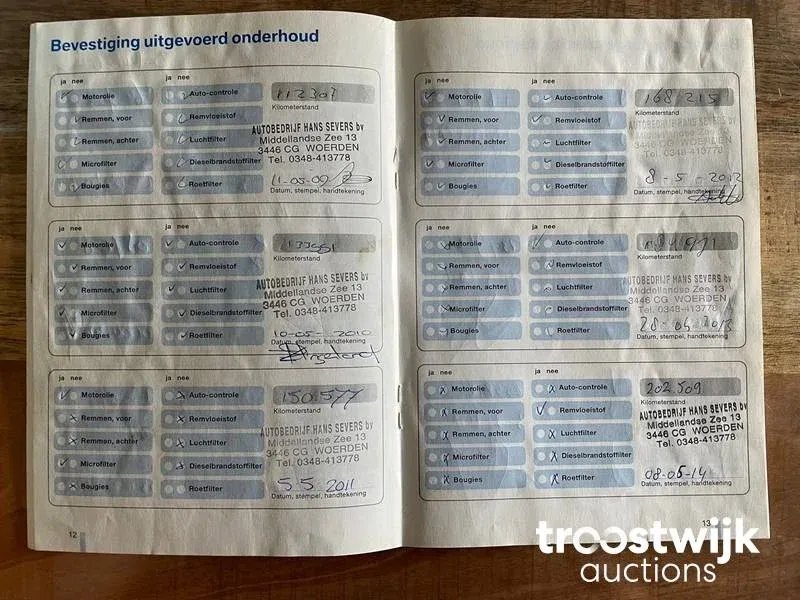 Bevestiging uitgevoerd onderhoud
ja nee ja nee
Motorolie Auto-controle 112307
Kilometerstand
Remmen, voor Remvloeistof
AUTOBEDRIJF HANS SEVERS bv
Remmen, achter Luchtfilter Middellandse Zee 13
3446 CG WOERDEN
Microfilter Dieselbrandstoffilter Tel. 0348-413778
Bougies Roetfilter 11-05-09
Datum, stempel, handtekening
ja nee ja nee
Motorolie Auto-controle
Kilometerstand
Remmen, voor Remvloeistof
AUTOBEDRIJF HANS SEVERS bv
Remmen, achter Luchtfilter Middellandse Zee 13
3446 CG WOERDEN
Microfilter Dieselbrandstoffilter Tel. 0348-413778
Bougies Roetfilter 10-05-2010
Datum, stempel, handtekening
ja nee ja nee
Motorolie Auto-controle 150.577
Kilometerstand
Remmen, voor Remvloeistof
AUTOBEDRIJF HANS SEVERS bv
Remmen, achter Luchtfilter Middellandse Zee 13
3446 CG WOERDEN
Microfilter Dieselbrandstoffilter Tel. 0348-413778
Bougies Roetfilter 5-5 2011
Datum, stempel, handtekening
12
ja nee ja nee
Motorolie Auto-controle 168215
Kilometerstand
Remmen, voor Remvloeistof
AUTOBEDRIJF HANS SEVERS bv
Remmen, achter Luchtfilter Middellandse Zee 13
3446 CG WOERDEN
Microfilter Dieselbrandstoffilter Tel. 0348-413778
Bougies Roetfilter 8-5-2012
Datum, stempel, handtekening
ja nee ja nee
Motorolie Auto-controle
Kilometerstand
Remmen, voor Remvloeistof
AUTOBEDRIJF HANS SEVERS bv
Remmen, achter Luchtfilter Middellandse Zee 13
3446 CG WOERDEN
Microfilter Dieselbrandstoffilter Tel. 0348-413778
Bougies Roetfilter
Datum, stempel, handtekening
ja nee ja nee
Motorolie Auto-controle 202.509
Kilometerstand
Remmen, voor Remvloeistof
AUTOBEDRIJF HANS SEVERS bv
Remmen, achter Luchtfilter Middellandse Zee 13
3446 CG WOERDEN
Microfilter Dieselbrandstoffilter Tel. 0348-413778
Bougies Roetfilter 08-05-14
Datum, stempel, handtekening
13
troostwijk
auctions